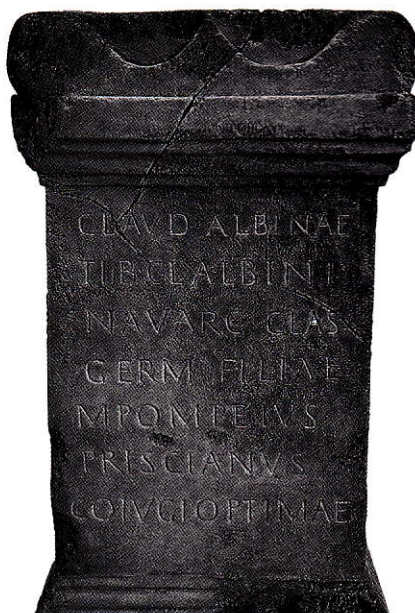 CLAVD ALBINAE
TIB CL ALBINI
NAVARC CLAS
GERM FILIAE
M POMPEIVS
PRISCIANVS
COIVGI OPTIMAE